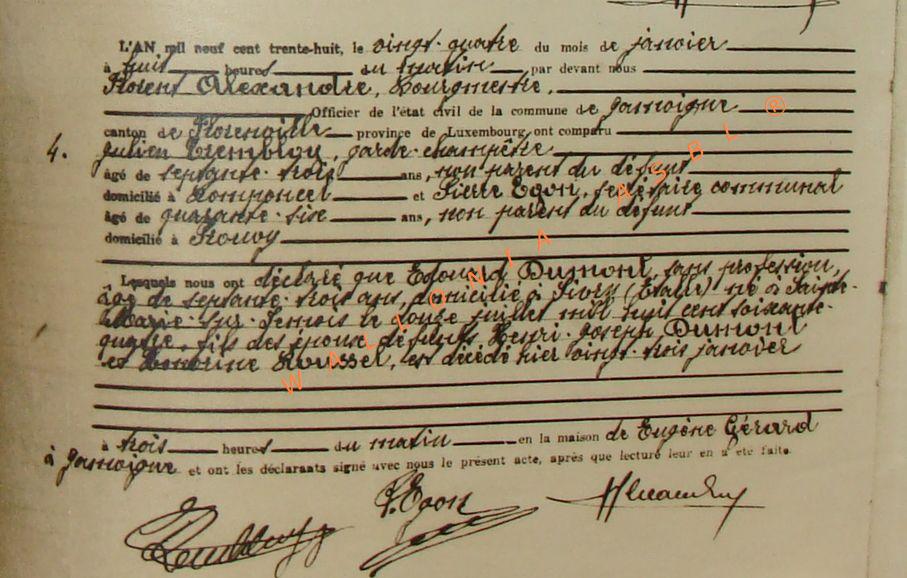 L'AN mil neuf cent trente-huit, le vingt-quatre du mois de janvier
à huit heures du matin par devant nous
Florent Alexandre, Bourgmestre,
Officier de l'état civil de la commune de Jamoigne
canton de Florenville province de Luxembourg ont comparu
4. Julien Tremblou, garde-champêtre
âgé de septante-trois ans, non parent du défunt
domicilié à Romponcel et Pierre Egon, secrétaire communal
âgé de quarante-six ans, non parent du défunt
domicilié à Prouvy
Lesquels nous ont déclaré que Edouard Dumont, sans profession,
âgé de septante-trois ans, domicilié à Sivry (Etalle) né à Sainte-
Marie-sur-Semois le douze juillet mil huit cent soixante-
quatre, fils des époux défunts Henri-Joseph Dumont
et Honorine Rousset, est décédé hier vingt-trois janvier
à trois heures du matin en la maison de Eugène Gérard
à Jamoigne et ont les déclarants signé avec nous le présent acte, après que lecture leur en a été faite.
P. Egon
WALLONIA ASBL ®